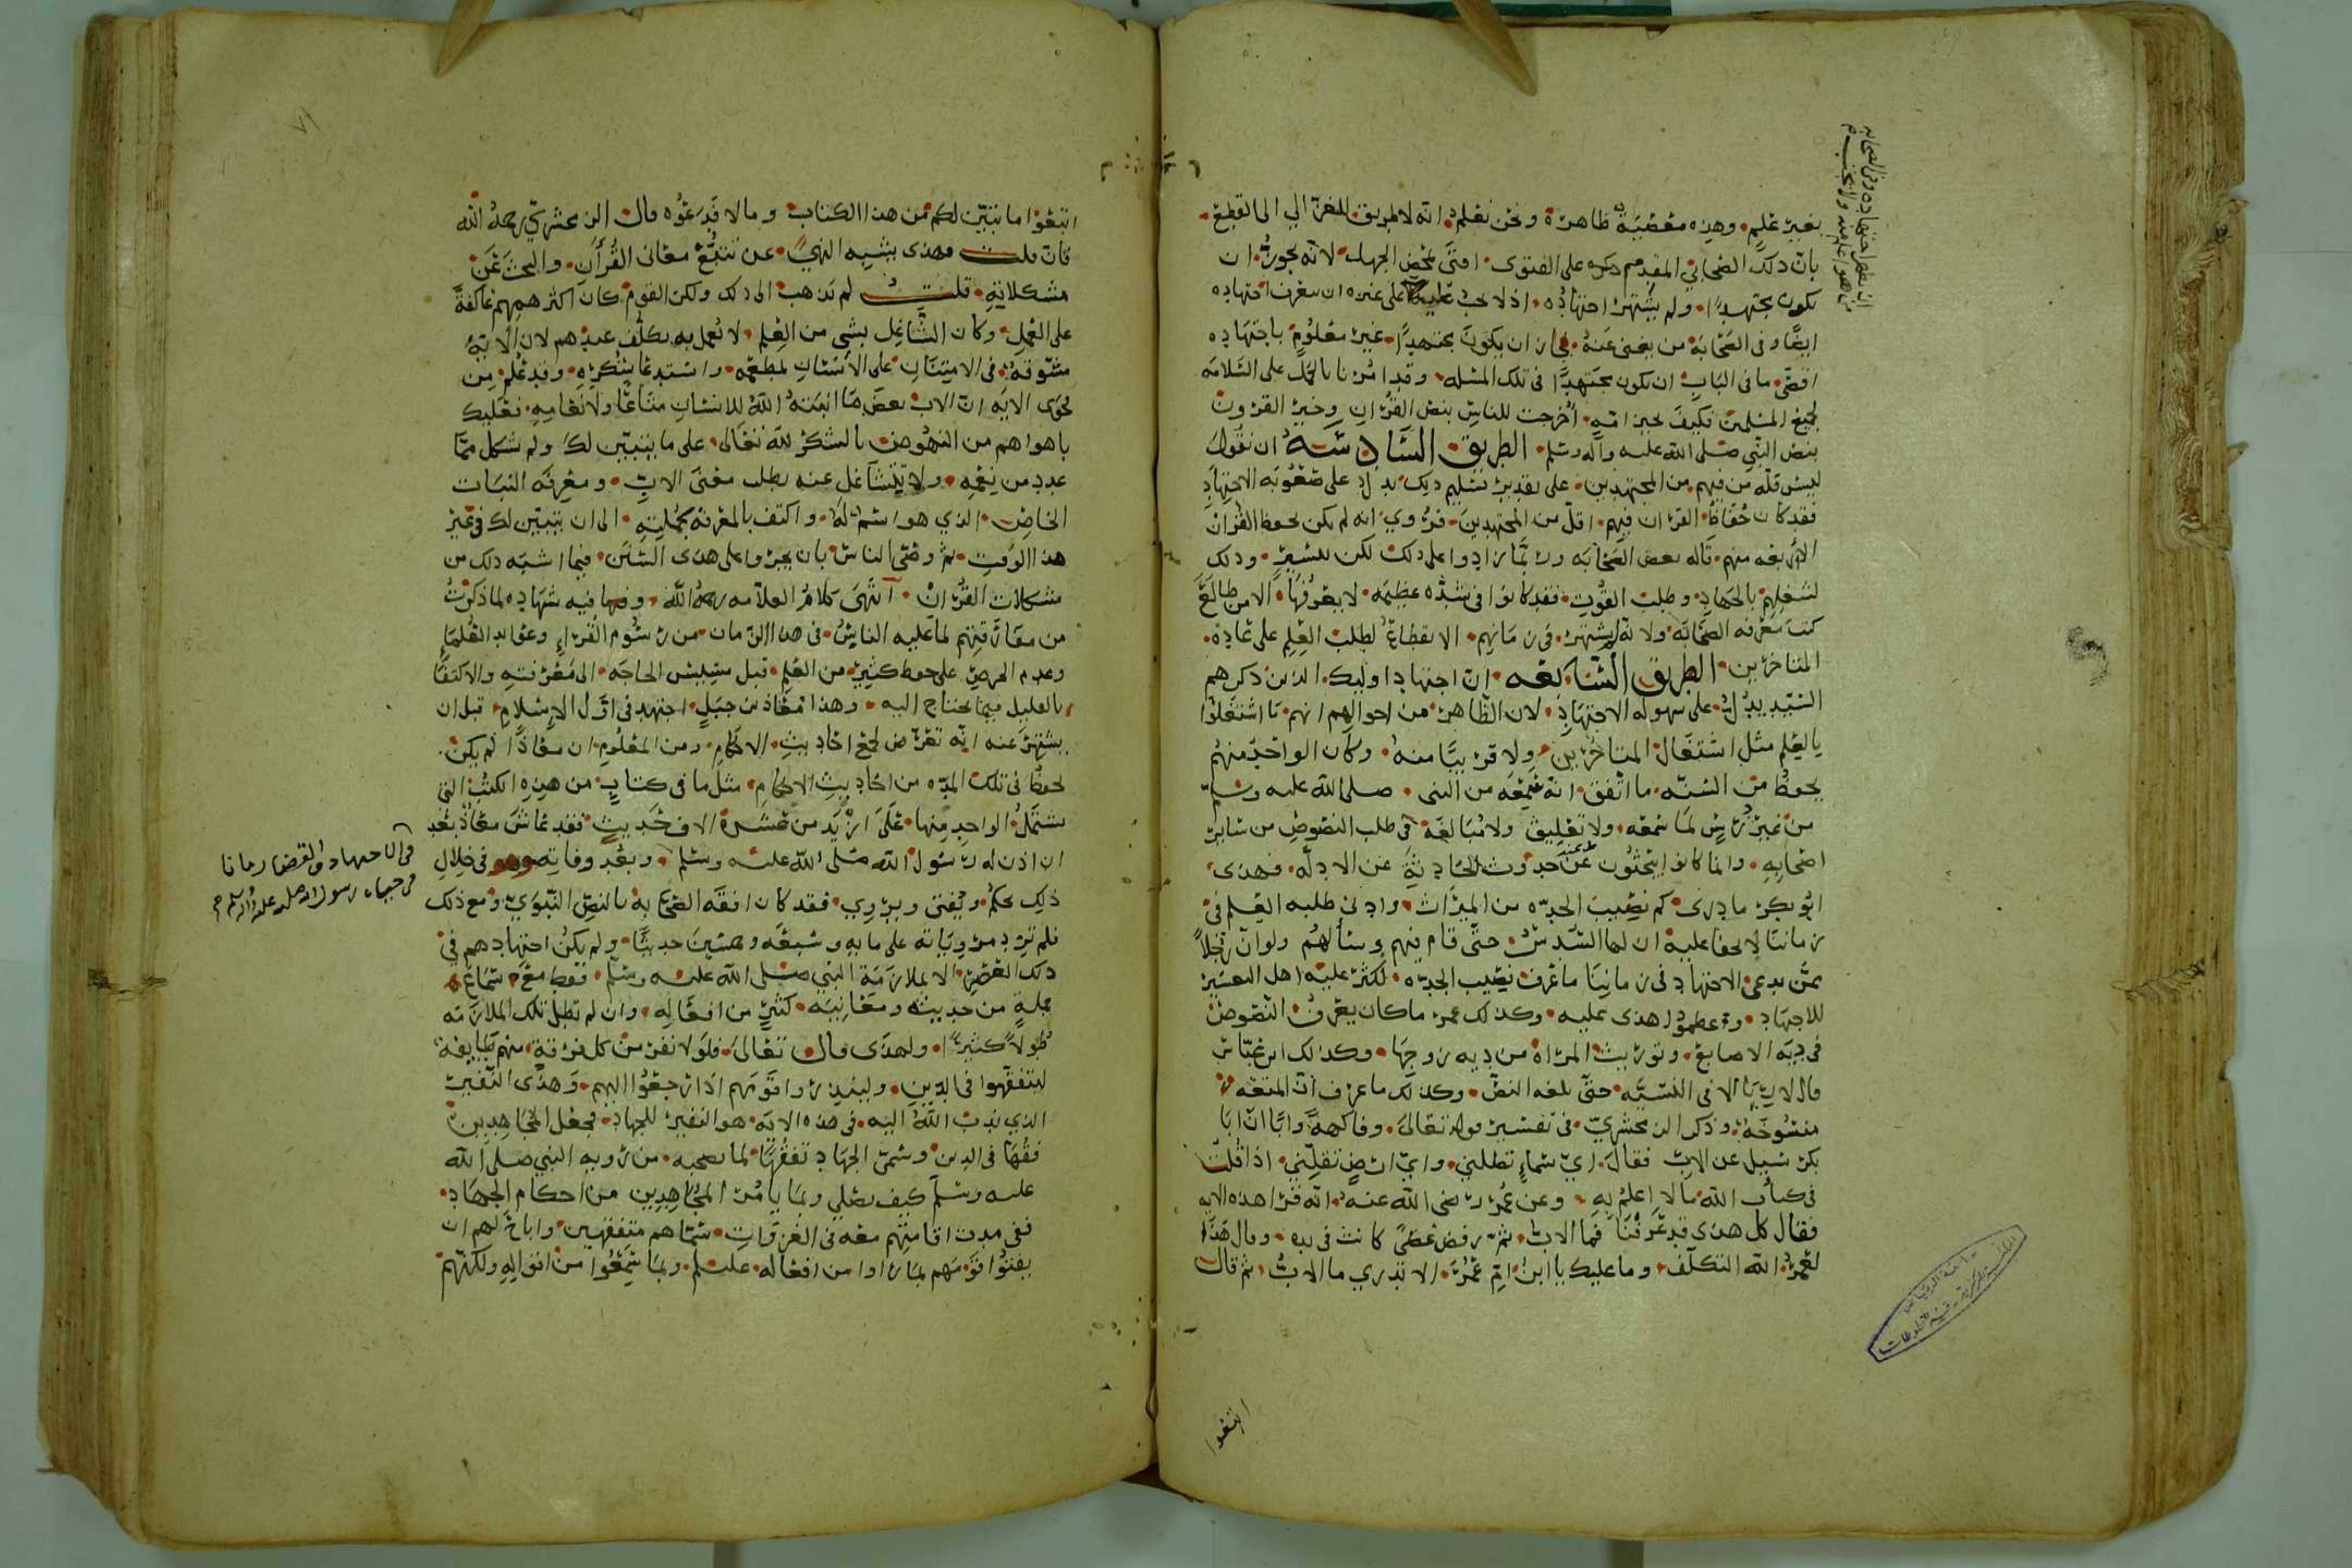 بغير علم وهذه معصية ظاهرة ونحن نعلم انه لا طريق للغزالي الى القطع
بان ذلك الصحابي المقدم على الفتوى افتى لمحض الجهل لانه يجوز ان
يكون مجتهدًا ولم يشتهر اجتهاده اذ لا يجب على غيره ان يعرف اجتهاده
ايضًا وفي الصحابة من يفتي عنه فجاز ان يكون مجتهدًا غير معلوم باجتهاده
اقصى ما في الباب ان يكون مجتهدًا في تلك المسله وقد امرنا بالحمل على السلامه
لجميع المسلمين فكيف بخير امه اخرجت للناس بنص القران وخير القرون
بنص النبي صلى الله عليه وآله وسلم الطريق السادسة ان نقول
ليس قلة من فيهم من المجتهدين على تقدير تسليم ذلك يدل على صعوبة الاجتهاد
فقد كان حفاظ القران فيهم اقل من المجتهدين فروي انه لم يكن يحفظ القران
الا اربعه منهم قاله بعض الصحابه وربما زادوا على ذلك لكن ليسير وذلك
لشغلهم بالجهاد وطلب القوت فقد كانوا في شدة عظيمه لا يعرفها الا من طالع
كتب معرفه الصحابه ولانه لم يشتهر في زمانهم الانقطاع لطلب العلم على عادة
المتاخرين الطريق السابعه ان اجتهاد اوليك الذين ذكرهم
السيد يدل على سهولة الاجتهاد لان الظاهر من احوالهم انهم ما اشتغلوا
بالعلم مثل اشتغال المتاخرين ولا قريبًا منه وكان الواحد منهم
يحفظ من السنه ما اتفق انه سمعه من النبي صلى الله عليه وسلم
من غير درس لما سمعه ولا تعليق ولا مبالغة في طلب النصوص من ساير
اصحابه وانما كانوا يبحثون عند حدوث الحادثة عن الادله فهذى
ابو بكر ما درى كم نصيب الجده من الميراث وادنى طلبه العلم في
زماننا لا يخفا عليه ان لها السدس حتى قام فيهم وسألهم ولو ان رجلاً
ممن يدعي الاجتهاد في زماننا ما عرف نصيب الجده لكثر عليه اهل التعسير
للاجتهاد وعظموا هذى عليه وكذلك عمر ما كان يعرف النصوص
في دية الاصابع وتوريث المراة من دية زوجها وكذلك ابن عباس
قال لا ربا الا في النسيه حتى بلغه النص وكذلك ما عرف ان المتعه
منسوخة وذكر الزمخشري في تفسير قوله تعالى وفاكهةً وابًّا ان ابا
بكر سيل عن الاب فقال اي سماء تظلني واي ارض تقلني اذا قلت
في كتاب الله ما لا اعلم به وعن عمر رضي الله عنه انه قرا هذه الايه
فقال كل هذى قد عرفنا فما الاب ثم رفض عصًى كانت في يده وقال هذا
لعمر الله التكلف وما عليك يا ابن ام عمر الا تدري ما الاب ثم قال
اتبعوا
اتبعوا ما تبين لكم من هذا الكتاب وما لا فدعوه قال الزمخشري رحمه الله
فان قلت فهذى يشبه النهي عن تتبع معاني القرآن والبحث عن
مشكلاته قلت لم يذهب الى ذلك ولكن القوم كان اكثر همهم عاكفة
على العمل وكان التشاغل بشي من العلم لا يعمل به تكلف عندهم لان الاية
مسوقة في الامتنان على الانسان بمطعمه واستدعا شكره وقد علم من
فحوى الايه ان الاب بعض ما انبته الله للانسان متاعًا ولانعامه فعليك
بما هو اهم من النهوض بالشكر لله تعالى على ما تبين لك ولم شكل مما
عدد من نعمه ولا تتشاغل عنه بطلب معنى الاب ومعرفه النبات
الخاص الذي هو اسم له واكتف بالمعرفه بجملته الى ان يتبين لك في غير
هذا الوقت ثم وصى الناس بان يجروا على هذى السنن فيما اشبه ذلك من
مشكلات القران انتهى كلام العلامه رحمه الله وفيه شهاده لما ذكرت
من مفارقتهم لما عليه الناس في هذا الزمان من رسوم القراء وعوايد العلماء
وعدم الحرص على حفظ كثير من العلم قبل مسيس الحاجه الى معرفته والاكتفا
بالقليل فيما يحتاج اليه وهذا معاذ بن جبل اجتهد في اول الاسلام قبل ان
يشتهر عنه انه تعرض لجمع احاديث الاحكام ومن المعلوم ان معاذًا لم يكن
يحفظ في تلك المده من احاديث الاحكام مثل ما في كتاب من هذه الكتب التي
يشتمل الواحد منها على ازيد من عشرة الاف حديث فقد عاش معاذ بعد
ان اذن له رسول الله صلى الله عليه وسلم وبعد وفاته وهو في خلال
ذلك يحكم ويفتي ويروي فقد كان افقه الصحابة بالنص النبوي ومع ذلك
فلم تزد مروياته على مايه وسبعه وخمسين حديثًا ولم يكن اجتهادهم في
ذلك العصر الا بملازمة النبي صلى الله عليه وسلم فقط مع سماع
جملة من حديثه ومعاينة كثير من افعاله وان لم تطل تلك الملازمه
طولاً كثيرًا ولهذى قال تعالى فلولا نفر من كل فرقة منهم طايفة
ليتفقهوا في الدين ولينذروا قومهم اذا رجعوا اليهم وهذى النفير
الذي ندب الله اليه في هذه الايه هو النفير للجهاد فجعل المجاهدين
فقها في الدين وسمى الجهاد تفقهًا لما يصحبه من رويه النبي صلى الله
عليه وسلم كيف يصلي وبما يامر المجاهدين من احكام الجهاد
ففي مدت اقامتهم معه في الغزوات سماهم متفقهين واباح لهم ان
يفتوا قومهم بما راوا من افعاله عليلم وبما سمعوا من اقواله ولكنهم